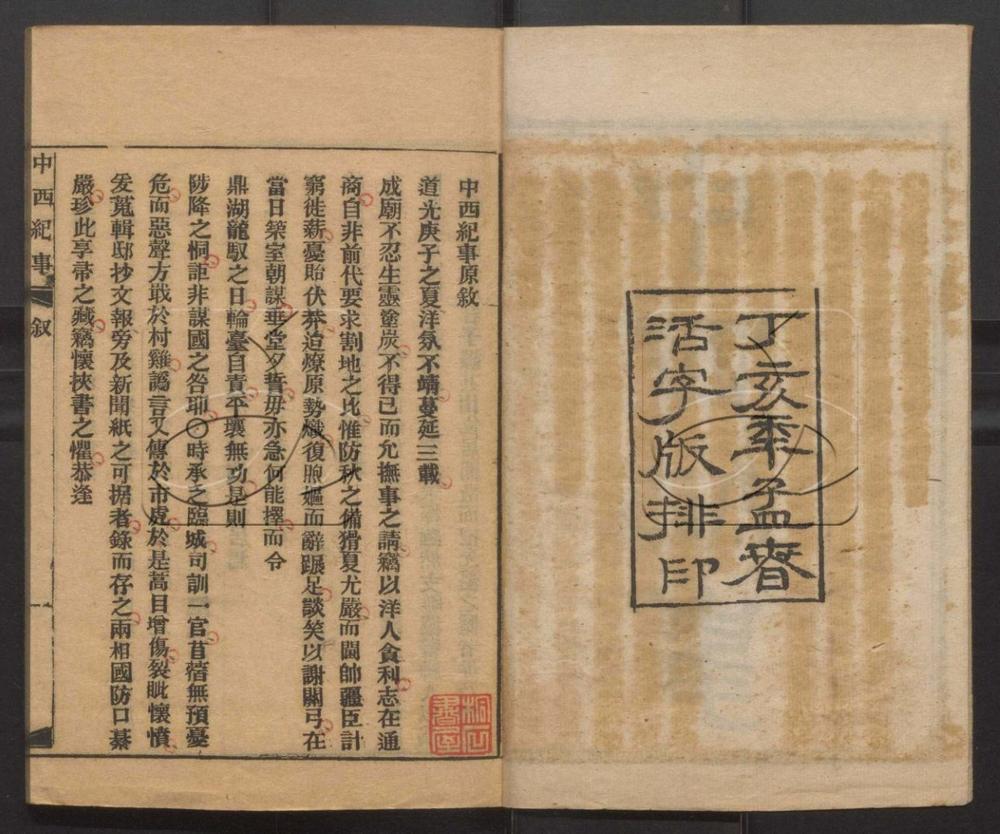 丁亥季孟春
活字版排印
中西紀事原敘
道光庚子之夏洋氛不靖蔓延三載
成廟不忍生靈塗炭不得已而允撫事之請竊以洋人貪利志在通
商自非前代要求割地之比惟防秋之備猾夏尤嚴而閫帥疆臣計
窮徙薪憂貽伏莽迨燎原勢熾復煦嫗而辭蹍足談笑以謝關弓在
當日築室朝謀垂堂夕誓毋亦急何能擇而令
鼎湖龍馭之日輪臺自責平壤無功是則
陟降之恫詎非謀國之咎耶〇時承之臨城司訓一官苜蓿無預憂
危而惡聲方戢於村雞譌言又傳於市虎於是蒿目增傷裂眦懷憤
爰蒐輯邸抄文報旁及新聞紙之可据者錄而存之兩相國防口綦
嚴珍此享帚之藏竊懷挾書之懼恭逢
中西紀事
叙